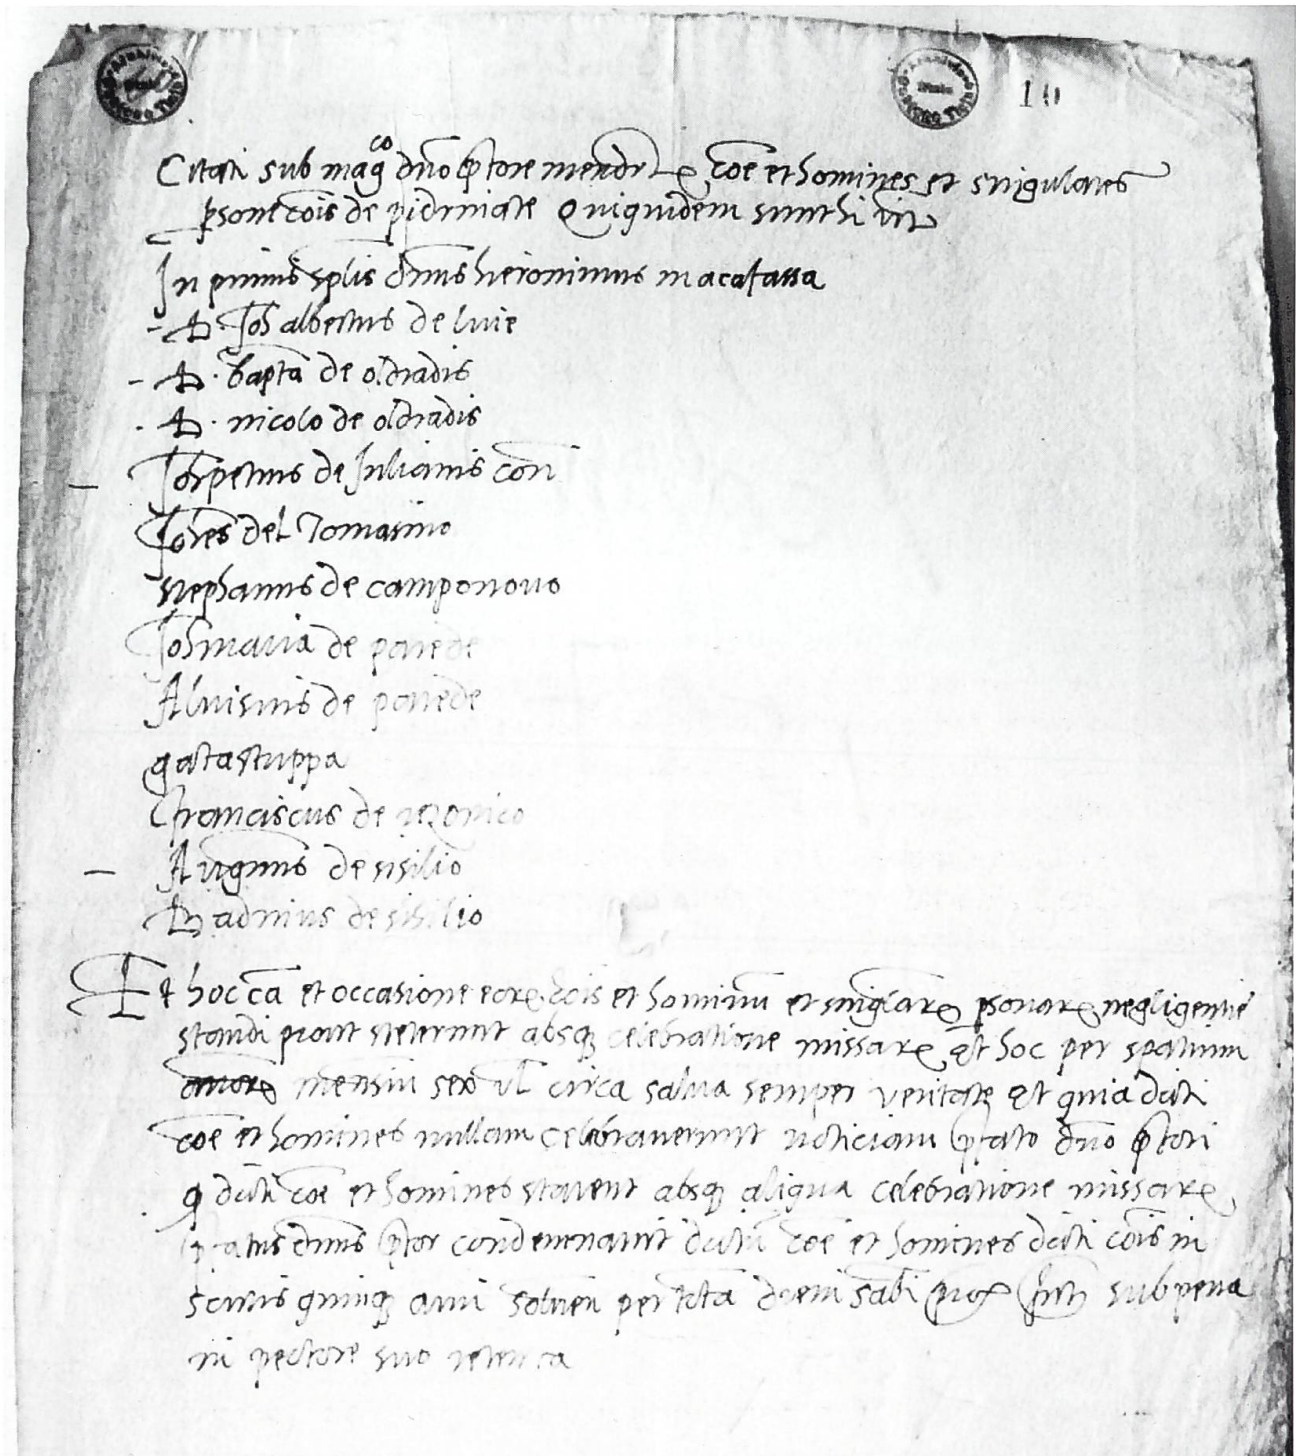 10
Citati sub mag.co dno ptore mendr. coe et homines et singulares
psone cois de pidrinate Quiquidem sunt hi vz
In primis splis dnus hieronimus macacassa
- D. Joh albertus de luie
- D. bapta de oldradis
- D. nicolo de oldradis
- Joh petrus de Julianis con
Johes del Tomasino
stephanus de camponovo
Joh maria de pariede
Aluisius de pariede
gatastuppa
franciscus de rezonico
- Augnus de sisilio
Badnius de sisilio
Et hoc ca et occasione eor cois et hominu et singlar psonar negligentie
standi prout steterunt absq celebratione missar Et hoc per spatium
annor mensiu sex vl circa salua semper veritate Et quia dicti
coe et homines nullam celebrauerunt noticiam pfato dno ptori
q dicti coe et homines starent absq aliqua celebratione missar
pfatus dnus ptor condemnauit dictu coe et homines dicti cois in
scutis quinq auri soluen per tota diem sabi prox sub pena
in pectore suo retenta